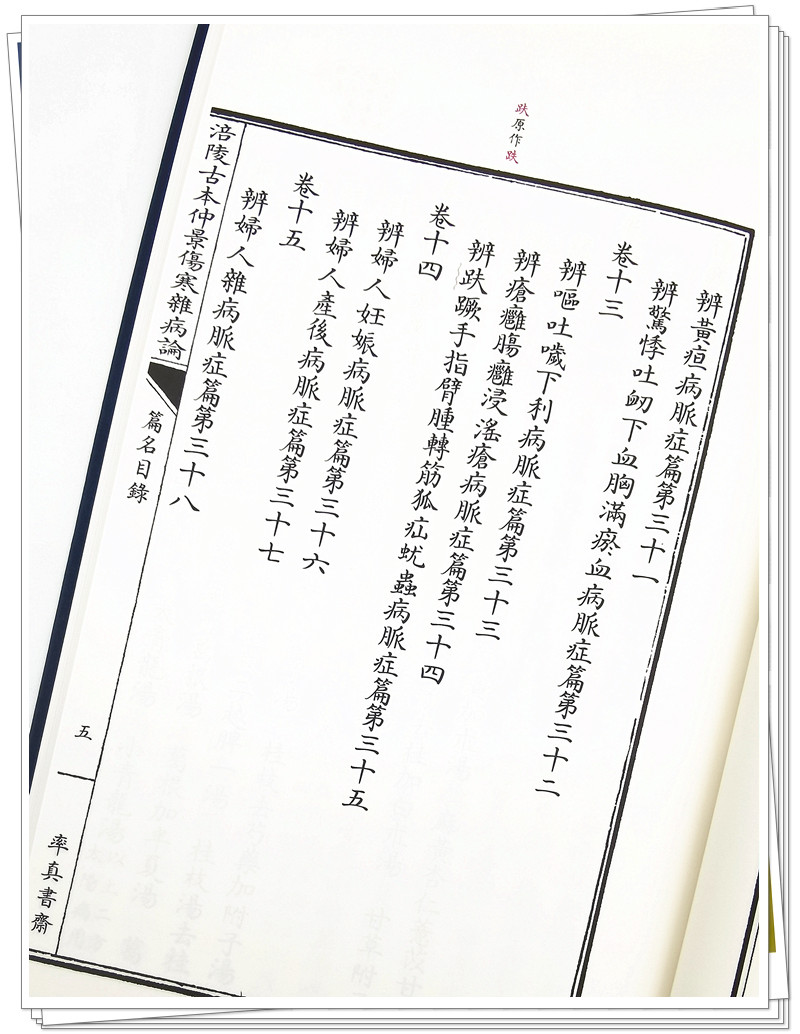 趺原作跌
辨黃疸病脈症篇第三十一
辨驚悸吐衂下血胸滿瘀血病脈症篇第三十二
卷十三
辨嘔吐噦下利病脈症篇第三十三
辨瘡癰腸癰浸滛瘡病脈症篇第三十四
辨趺蹶手指臂腫轉筋狐疝蚘蟲病脈症篇第三十五
卷十四
辨婦人妊娠病脈症篇第三十六
辨婦人產後病脈症篇第三十七
卷十五
辨婦人雜病脈症篇第三十八
涪陵古本仲景傷寒雜病論
篇名目錄
五
率真書齋